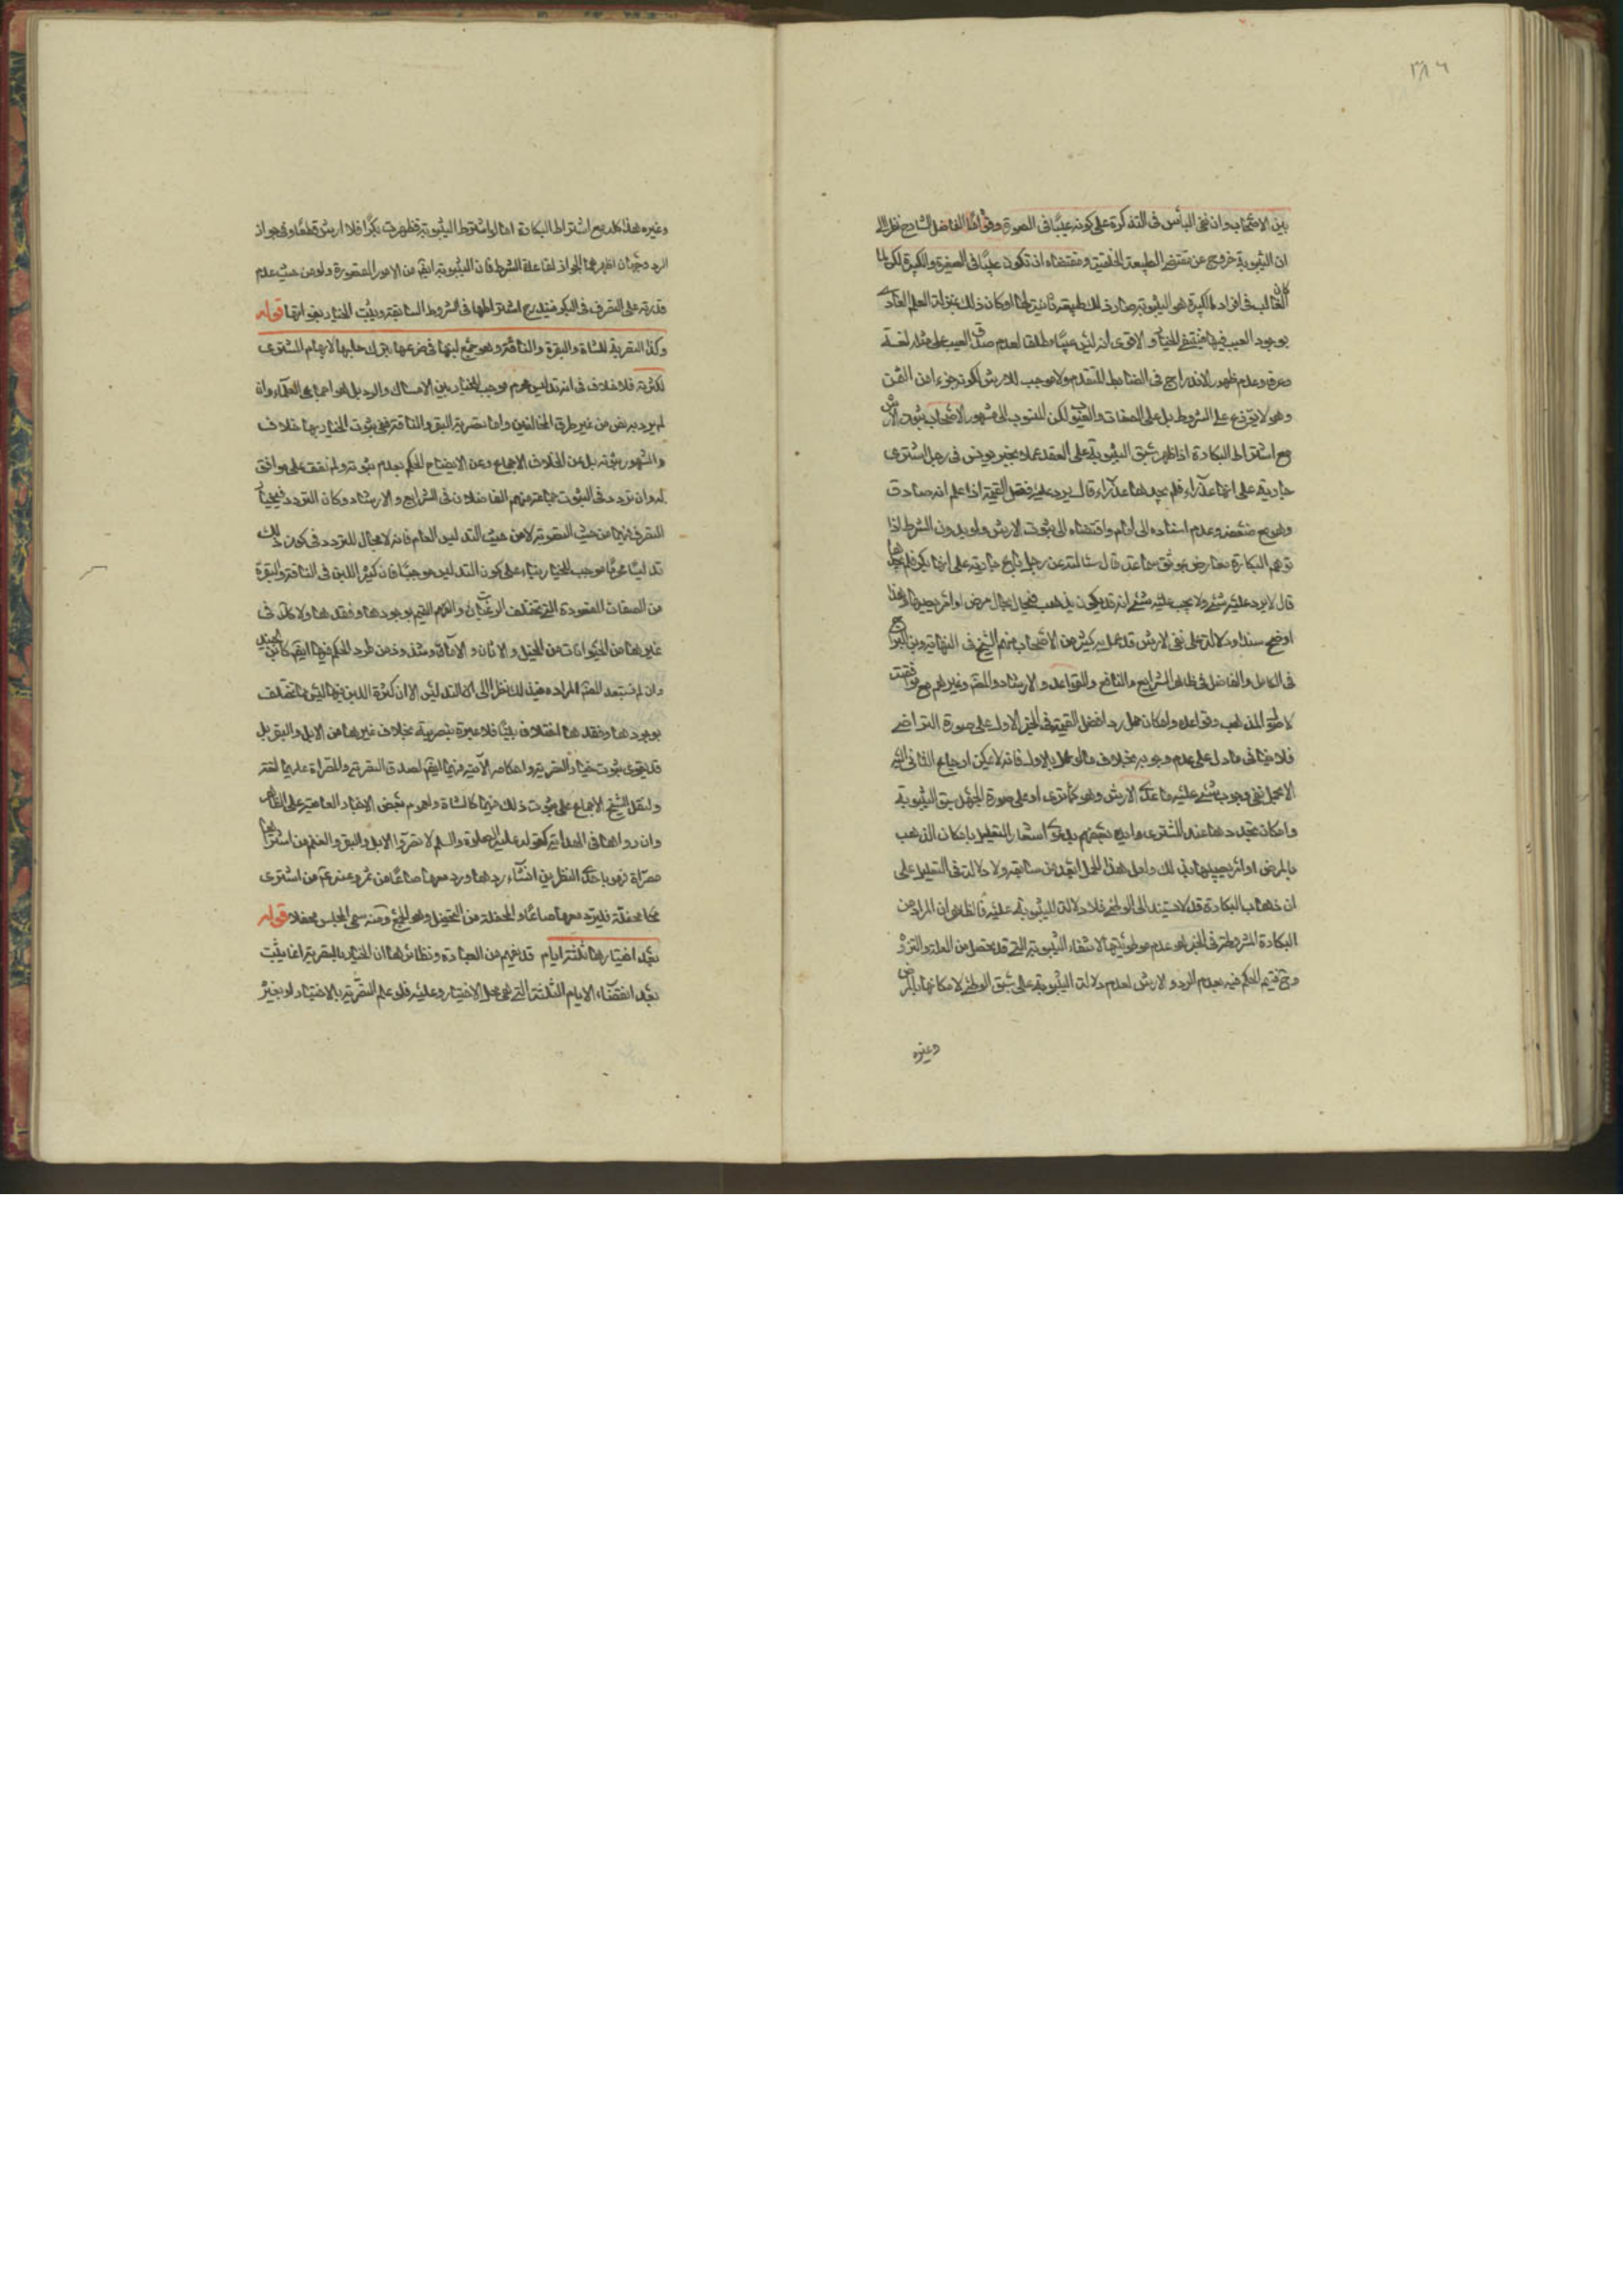 ٣٨٦
بين الاصحاب وان نفى البأس فى التذكرة على كونه عيبًا فى الصورة وقواه الفاضل الشارح نظرا الى
ان الثيوبة خروج عن مقتضى الطبيعة الخلقية ومقتضاه ان تكون عيبًا فى الصغيرة والكبيرة لكن لما
كان الغالب فى افراد الكبيرة هو الثيوبة صار ذلك طبيعة ثانية لها وكان ذلك بمنزلة العلم العادى
بوجود العيب فيها فينتفى الخيار والاقوى انه ليس عيبًا مطلقا لعدم صدق العيب على مثله لغة
وعرفا وعدم ظهور الاندراج فى الضابط المتقدم ولا موجب للارش لكونه جزءا من الثمن
وهو لا يتوزع على الشروط بل على الصفات والعيوب لكن المنسوب الى مشهور الاصحاب ثبوت الارش
مع اشتراط البكارة اذا ظهر سبق الثيوبة على العقد عملا بخبر يونس فى رجل اشترى
جارية على انها عذراء فلم يجدها عذراء قال يرد عليه فضل القيمة اذا علم انه صادق
وهو مع ضعفه وعدم اسناده الى امام واقتضاه الى ثبوت الارش ولو بدون الشرط اذا
توهم البكارة معارض بموثق سماعة قال سئالته عن رجل باع جارية على انها بكر فلم يجدها
قال لا يرد عليه شئ ولا يجب عليه شئ انه قد يكون يذهب فى حال مرض او امر يصيبها وهذا
اوضح سندا ودلالة على نفى الارش قد عمل به كثير من الاصحاب منهم الشيخ فى النهاية وابن البراج
فى الكامل والفاضل فى ظاهر الشرايع والنافع والقواعد والارشاد والمصنف وغيرهم مع موافقته
لاصول المذهب وقواعده وامكان حمل رد فضل القيمة فى الخبر الاول على صورة التراضى
فلا ينافى ما دل على عدم وجوبه بخلاف ما لو عمل بالاول فانه لا يمكن ارجاع الثانى اليه
الا بحمل نفى وجوب شئ عليه ما عدا الارش وهو كما ترى او على صورة الجهل بسبق الثيوبة
وامكان تجددها عند المشترى وايده بعضهم بدعوى اشعار التعليل بامكان الذهاب
بالمرض او امر يصيبها بذلك ولعل هذا الحمل ابعد من سابقه ولا دلالة فى التعليل على
ان ذهاب البكارة قد لا يستند الى الوطى فلا دلالة للثيوبة عليه فالظاهر ان المراد من
البكارة المشروطة فى الخبر هو عدم موطوئيتها لا انتفاء الثيوبة التى قد تحصل من العلة والنزو
وح فيتم الحكم فيه بعدم الرد والارش لعدم دلالة الثيوبة على سبق الوطى لامكانها بالمرض
وغيره
وغيره هذا كله مع اشتراط البكارة اما لو اشترط الثيوبة فظهرت بكرا فلا ارش قطعًا وفى جواز
الرد وجهان اظهرهما الجواز لقاعدة الشرط فان الثيوبة ايضا من الامور المقصورة ولو من حيث عدم
قدرته على التصرف فى البكر فيندرج اشتراطها فى الشروط السائغة ويثبت الخيار بفواتها قوله
وكذا التصرية للشاة والبقرة والناقة وهو جمع لبنها فى ضرعها بترك حلبها لايهام المشترى
لكثرته فلا خلاف فى انه تدليس محرم موجب للخيار بين الامساك والرد بل هو اجماعى العلماء وان
لم يرد به نص من غير طرق المخالفين واما تصرية البقر والناقة ففى ثبوت الخيار بها خلاف
والمشهور ثبوته بل عن الخلاف الاجماع وعن الايضاح الحكم بعدم ثبوته ولم نقف على موافق
له وان تردد فى الثبوت جماعة منهم الفاضلان فى الشرايع والارشاد وكان التردد فى خيار
التصرية فيهما من حيث التصرية لا من حيث التدليس العام فانه لا مجال للتردد فى كون ذلك
تدليسًا محرمًا موجب للخيار بناء على كون التدليس موجبًا فان كثير اللبن فى الناقة والبقرة
من الصفات المقصودة التى تختلف الرغبات والقيم بوجودها وفقدها ولا كك فى
غيرها من الحيوانات من الخيل والاتان والامة وشذ وذ من طرد الحكم فيها ايضا كابن الجنيد
وان لم يستبعد المصنف اطراده فيه لك نظرا الى التدليس الا ان كثرة اللبن فيها ليس مما تختلف
بوجودها وفقدها اختلاف بيّنًا فلا عبرة بتصريته بخلاف غيرها من الابل والبقر بل
قد يقوى ثبوت خيار التصرية واحكامه الآتية فيهما ايضا لصدق التصرية والمصراة عليهما لغة
ولنقل الشيخ الاجماع على ثبوت ذلك فيهما كالشاة ولعموم بعض الاخبار العامية على الظاهر
وان رواها فى الهداية كقوله عليه الصلوة والسلم لا تصروا الابل والبقر والغنم من اشتراها
مصراة فهو باحد النظرين ان شاء ردها ورد معها صاعًا من تمر وعنه ع من اشترى
محفلة فليرد معها صاعًا والمحفلة من التحفيل وهو الجمع ومنه سمى المجلس محفلا قوله
بعد اختبارها ثلثة ايام قد يفهم من العبارة ونظائرها ان الخيار بالتصرية انما يثبت
بعد انقضاء الايام الثلثة التى هى محل الاختبار وعليه فلو علم التصرية بالاختبار او بغير